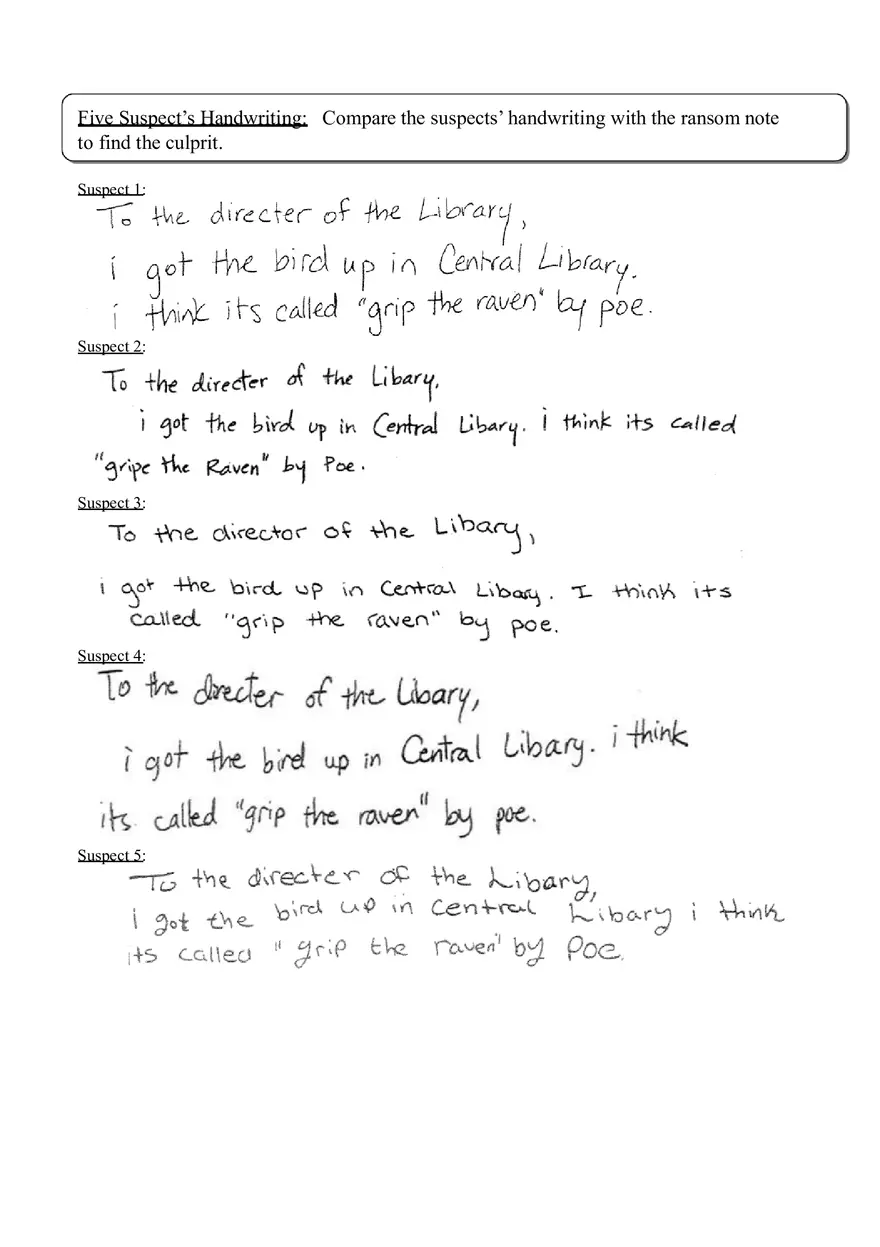 Five Suspect's Handwriting: Compare the suspects' handwriting with the ransom note
to find the culprit.
Suspect 1:
To the directer of the Library,
i got the bird up in Central Library.
i think its called "grip the raven" by poe.
Suspect 2:
To the directer of the Libary,
i got the bird up in Central Libary. i think its called
"gripe the Raven" by Poe.
Suspect 3:
To the director of the Libary,
i got the bird up in Central Libary. I think its
called "grip the raven" by poe.
Suspect 4:
To the directer of the Libary,
i got the bird up in Central Libary. i think
its called "grip the raven" by poe.
Suspect 5:
To the directer of the Libary,
i got the bird up in central Libary i think
its called "grip the raven" by Poe.